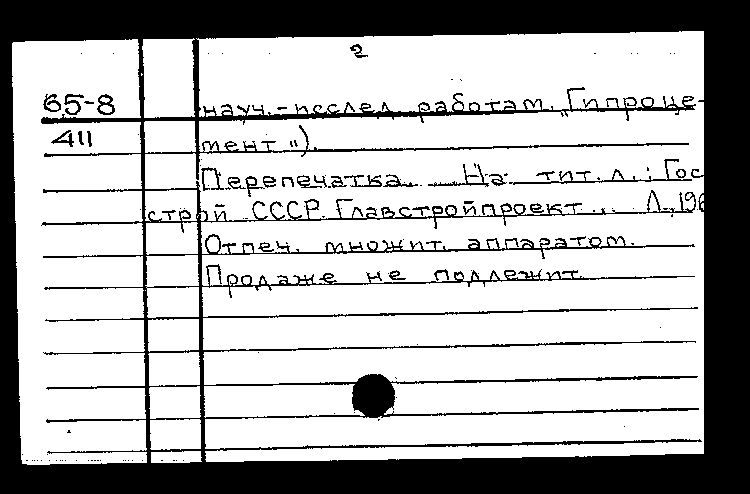 2
65-8 науч.-исслед. работам „Гипроце-
411 мент").
Перепечатка. На тит. л.: Гос
строй СССР. Главстройпроект... Л., 196
Отпеч. множит. аппаратом.
Продаже не подлежит.